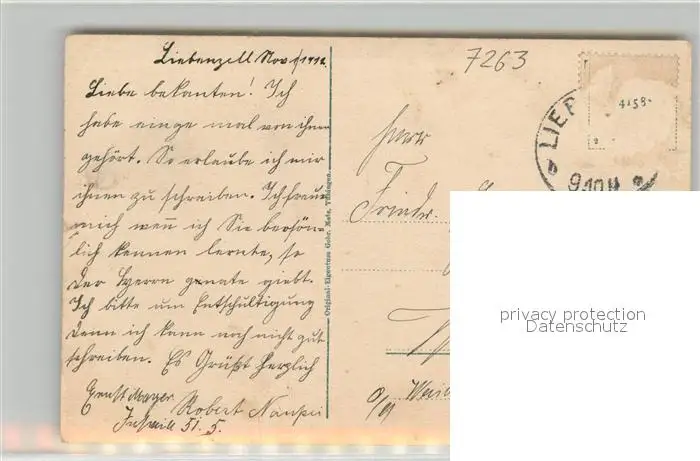 Liebenzell Nov
7263
Liebe bekanten! Ich
habe einge mal von ihnen
gehört. So erlaube ich mir
ihnen zu schreiben. Ich freue
mich wenn ich Sie bersön-
lich kennen lernte, so
der Herrn genate giebt.
Ich bitte um Entschultigung
denn ich kann noch nicht gut
schreiben. Es Grüßt herzlich
Ernst Mayer
Robert
51. 5.
Original-Eigentum Gebr. Metz, Tübingen.
4158
LIEB
Herr
Friedr.
privacy protection
Datenschutz